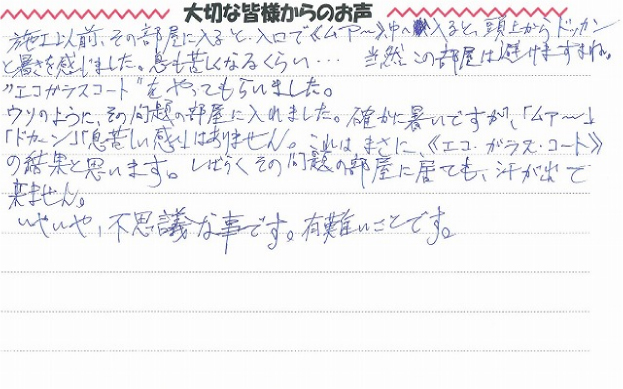 大切な皆様からのお声
施工以前、その部屋に入ると、入口で《ムアー》中へ入ると、頭上からドッカン
と暑さを感じました。息も苦しくなるくらい… 当然この部屋は避けますよね。
"エコガラスコート"をやってもらいました。
ウソのように、その問題の部屋に入れました。確かに暑いですが、「ムアー」
「ドカーン」「息苦しい感じ」はありません。これはまさに、《エコ・ガラス・コート》
の結果と思います。しばらくその問題の部屋に居ても、汗が出て
来ません。
いやいや、不思議な事です。有難いことです。